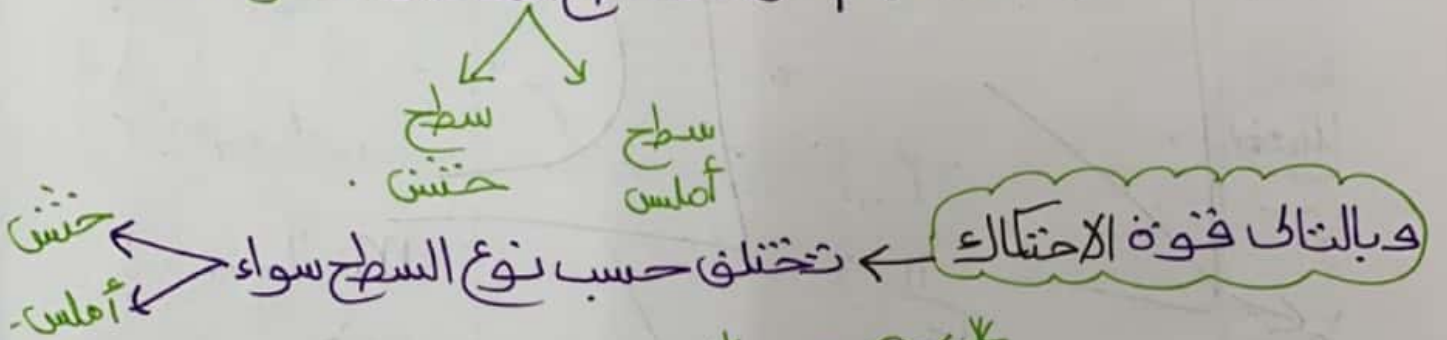 سطح أملس
سطح خشن
وبالتالى قوة الاحتكاك ← تختلف حسب نوع السطح سواء
خشن
أملس.